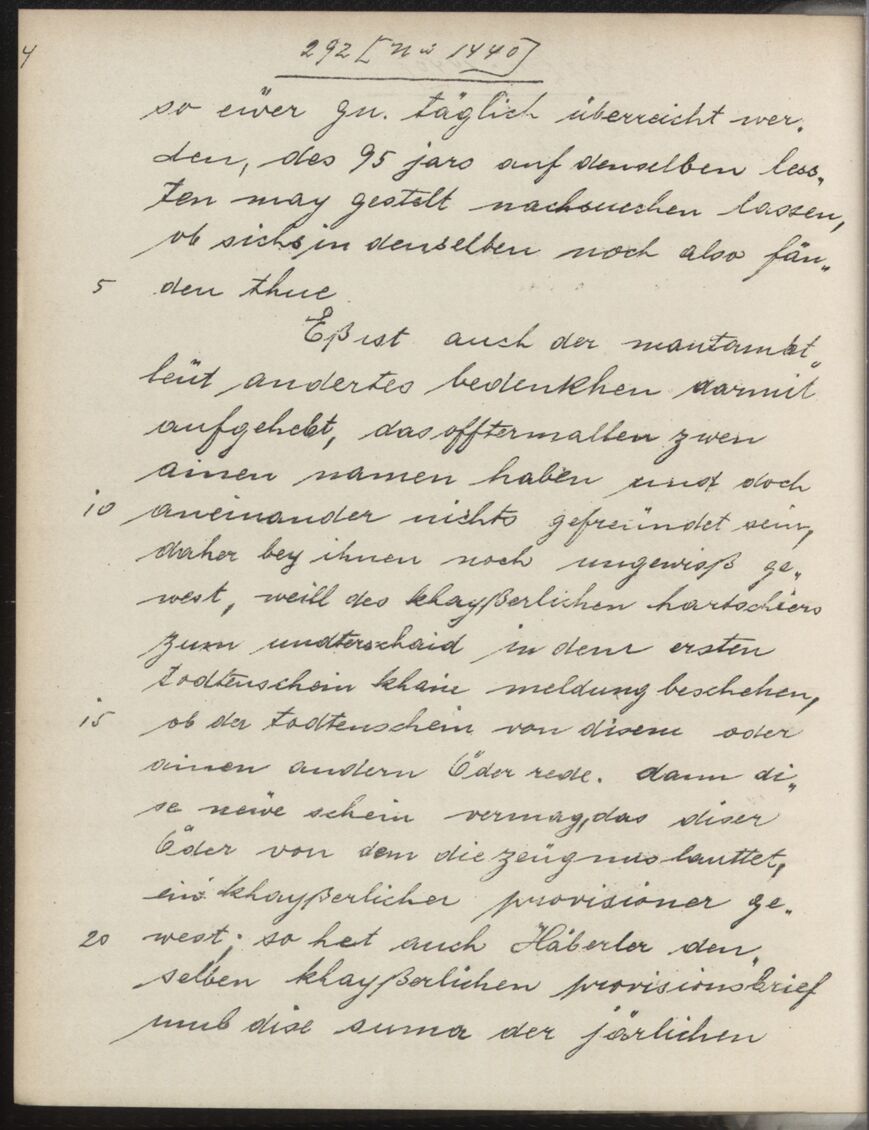 4
292 [Nr 1440]
so eüer gn. täglich überreicht wer„
den, des 95 jars auf denselben less„
ten may gestelt nachsuechen lassen,
ob sichs in denselben noch also fän„
5 den thue
Eß ist auch der mautambt„
leüt andertes bedenkhen darmit
aufgehebt, das offtermallen zwen
ainen namen haben und doch
10 aneinander nichts gefreündet sein,
daher bey ihnen noch ungewiß ge„
west, weill des khayßerlichen hartschiers
zum undterschaid in dem ersten
todtenschein khain meldung beschehen,
15 ob der todtenschein von disem oder
ainen andern Öder rede. dann di„
se neüe schein vermag, das diser
Öder von dem die zeügnus lauttet,
ein khayßerlicher provisioner ge„
20 west; so het auch Häberler den„
selben khayßerlichen provisionsbrief
umb dise suma der järlichen